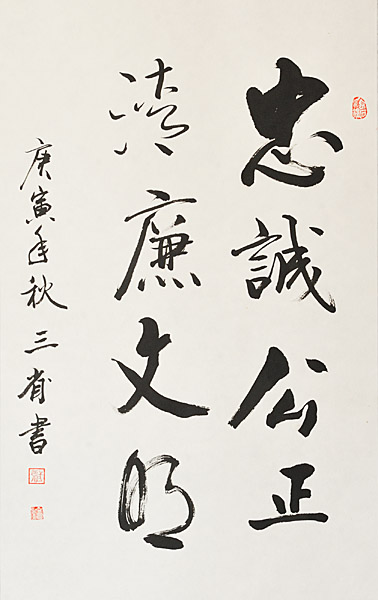 忠誠公正
清廉文明
庚寅年秋三省書